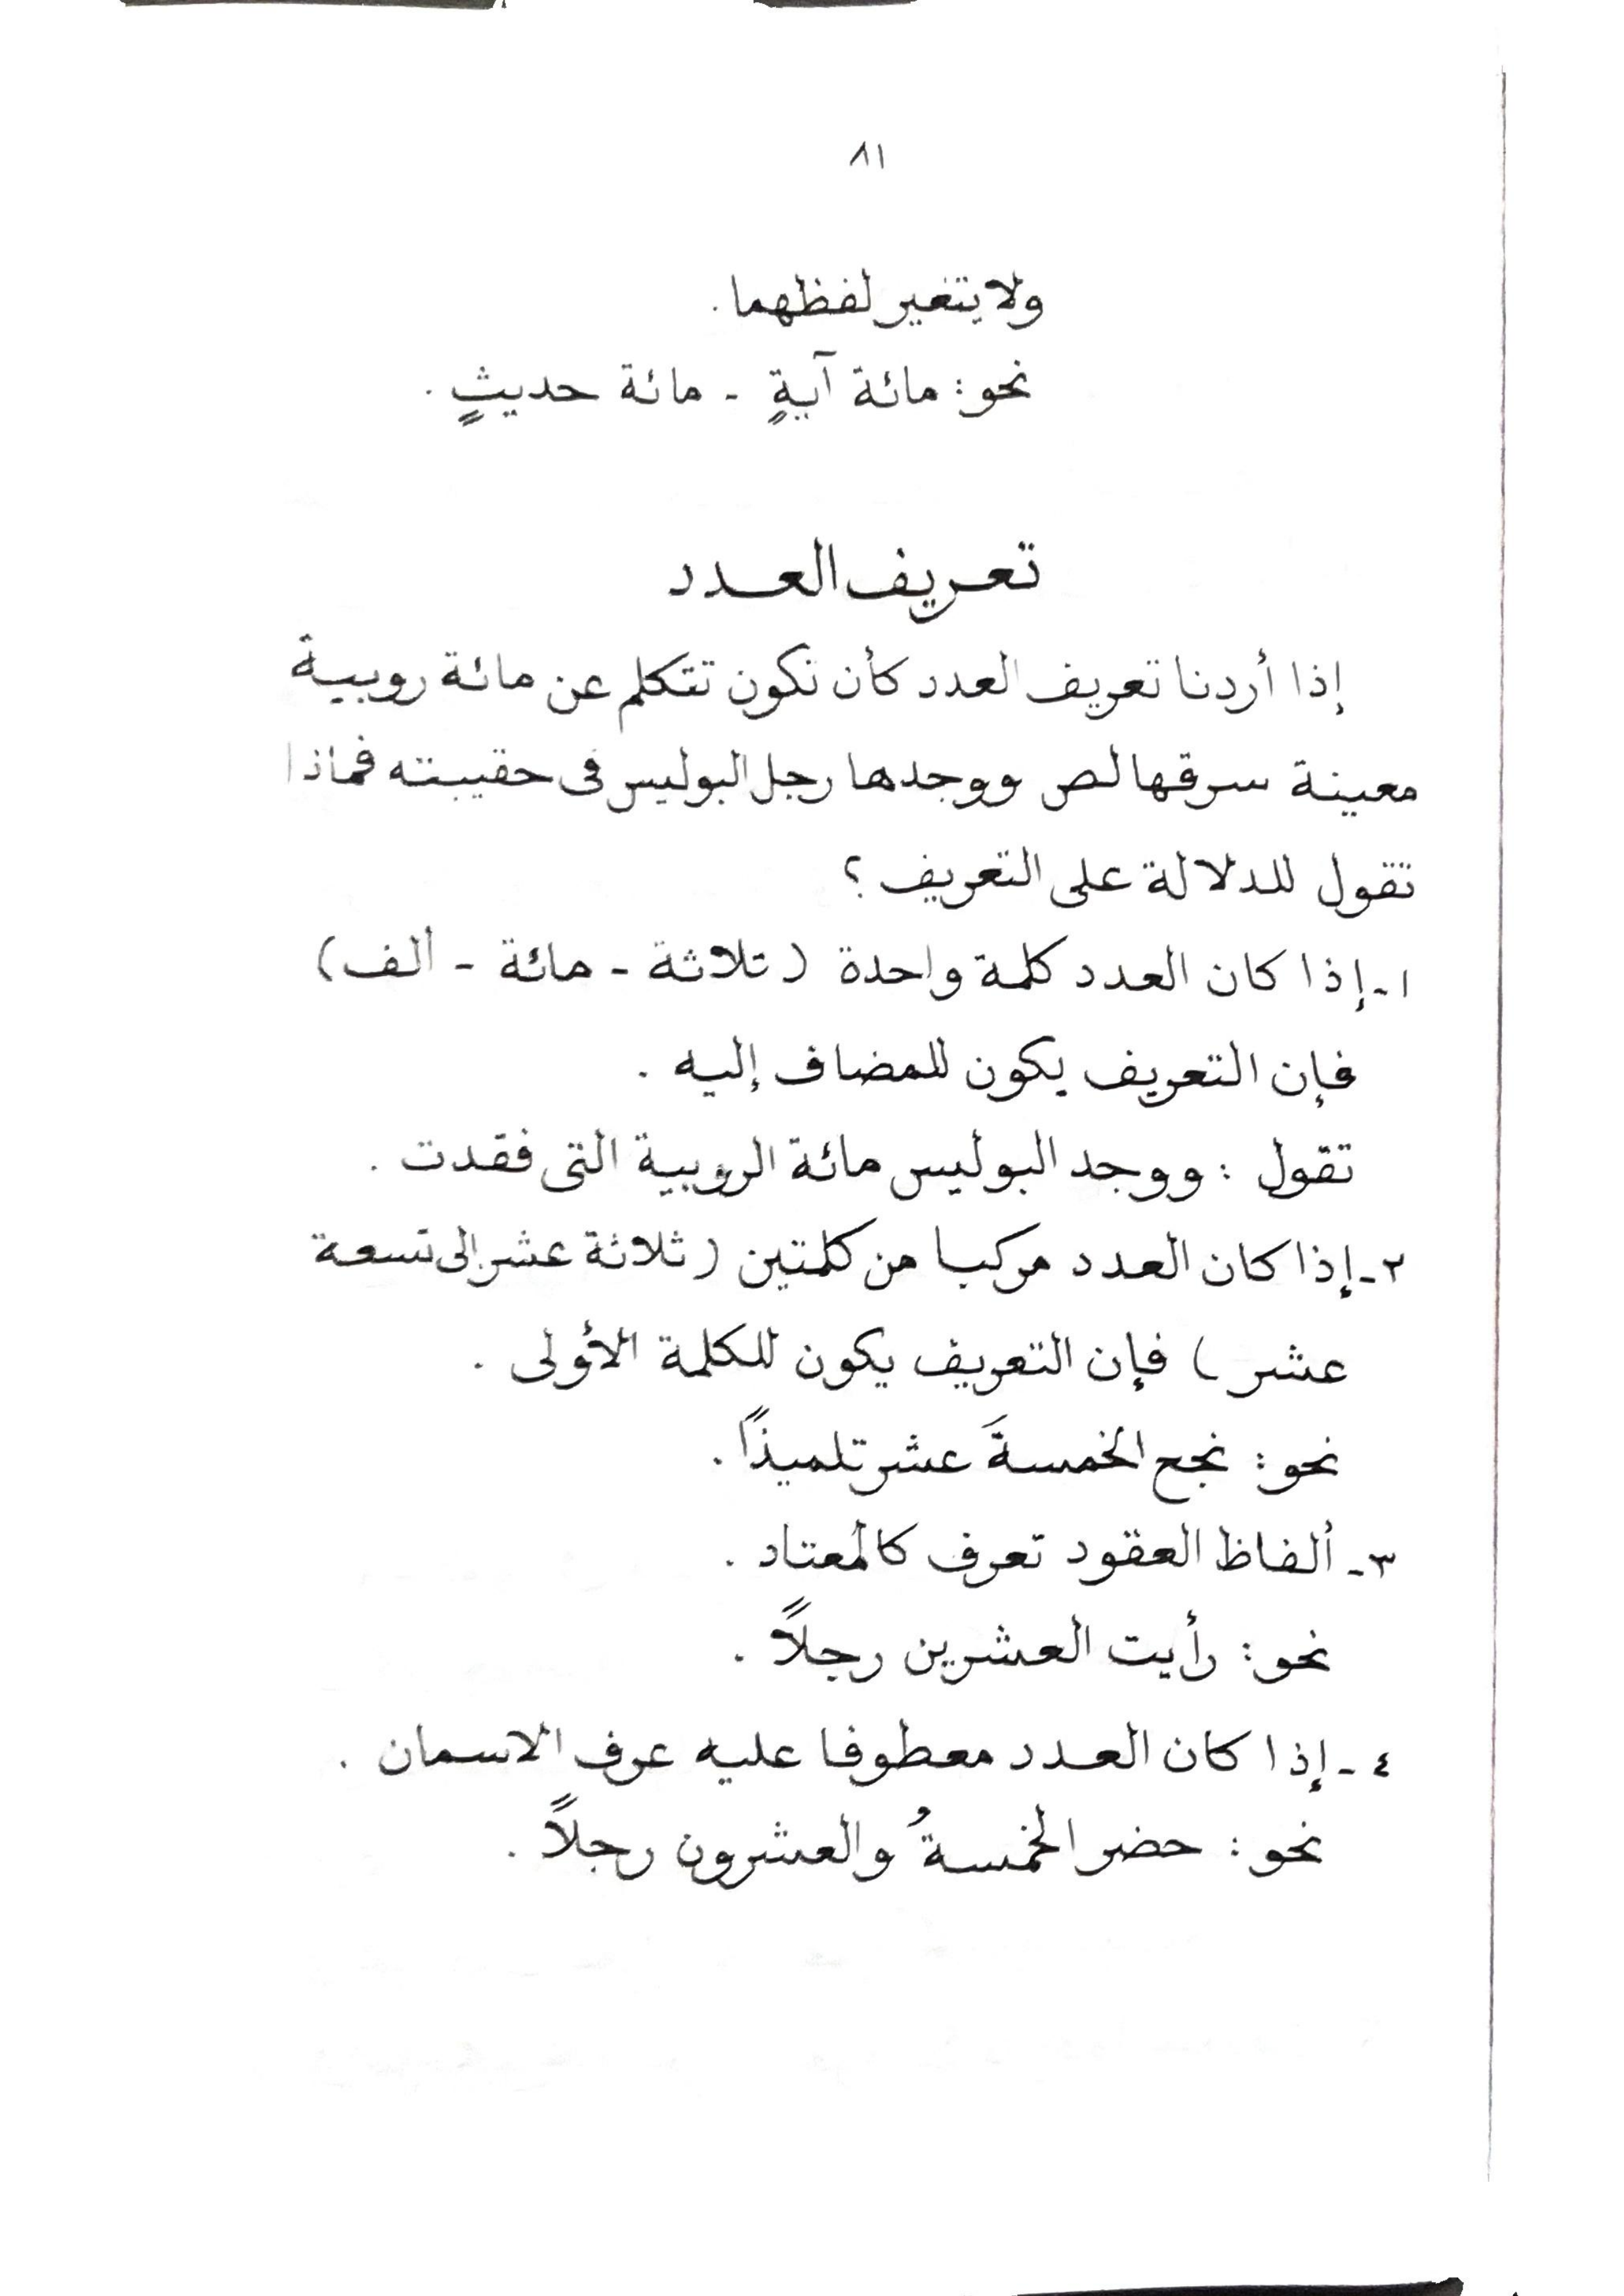 ٨١
ولا يتغير لفظهما .
نحو : مائة آيةٍ - مائة حديثٍ .
تعريف العدد
إذا أردنا تعريف العدد كأن نكون نتكلم عن مائة روبية
معينة سرقها لص ووجدها رجل البوليس فى حقيبته فماذا
تقول للدلالة على التعريف ؟
١- إذا كان العدد كلمة واحدة ( ثلاثة - مائة - ألف )
فإن التعريف يكون للمضاف إليه .
تقول : ووجد البوليس مائة الروبية التى فقدت .
٢- إذا كان العدد مركبا من كلمتين ( ثلاثة عشر إلى تسعة
عشر ) فإن التعريف يكون للكلمة الأولى .
نحو : نجح الخمسةَ عشر تلميذاً .
٣- ألفاظ العقود تعرف كالمعتاد .
نحو : رأيت العشرين رجلاً .
٤- إذا كان العدد معطوفا عليه عرف الاسمان .
نحو : حضر الخمسةُ والعشرون رجلاً .